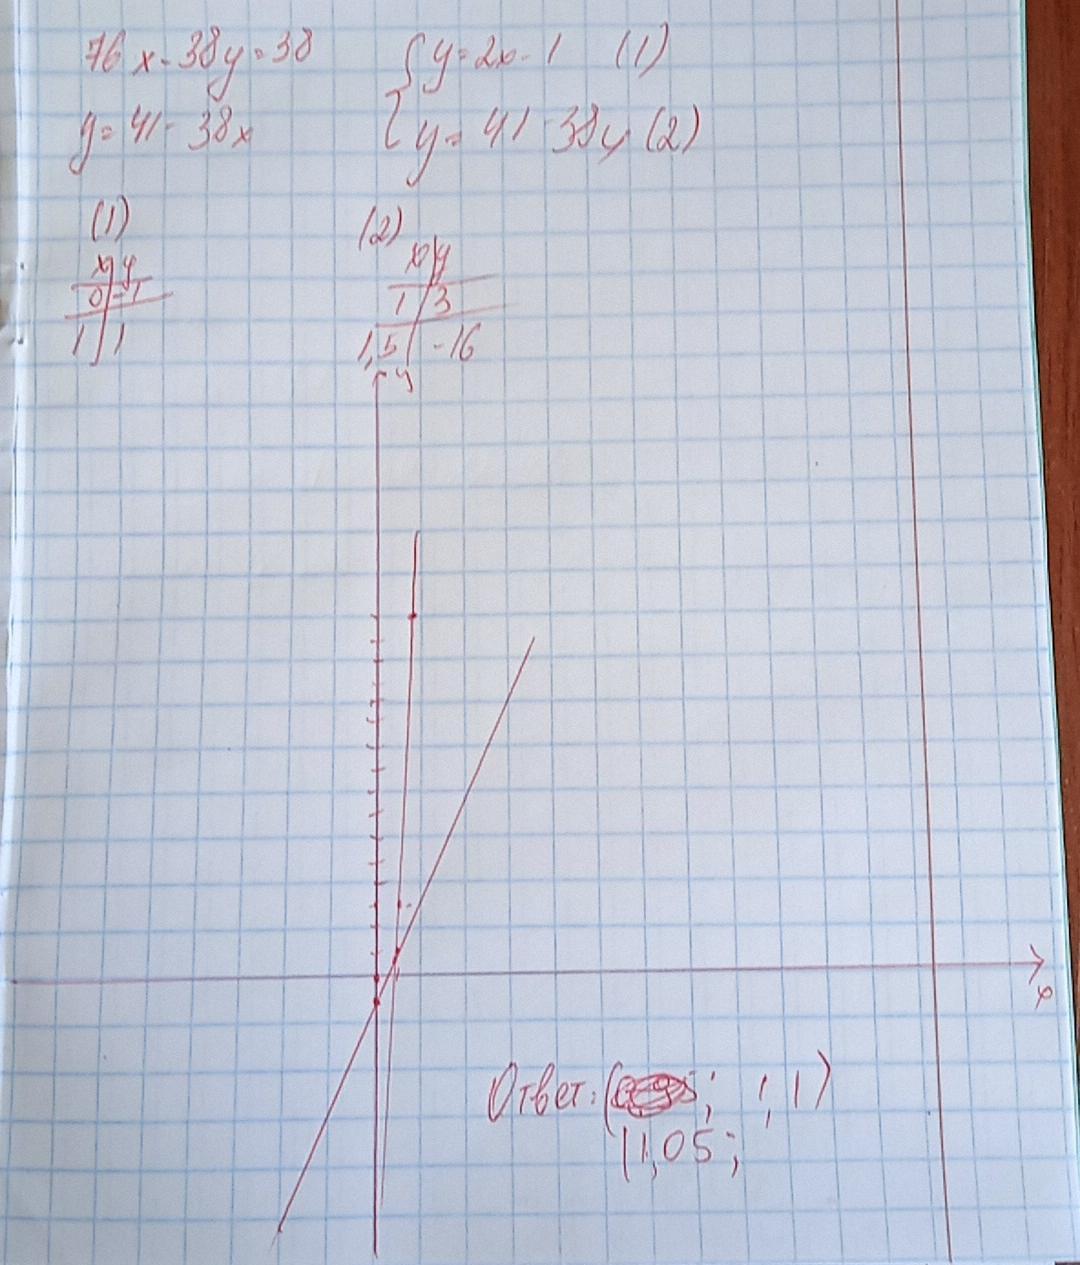 76x-38y=38
y=41-38x
{y=2x-1 (1)
{y=41-38y (2)
(1)
x|y
0|-1
1|1
(2)
x|y
1|3
1,5|-16
y
x
Ответ: ( ; 1,1)
(1,05;